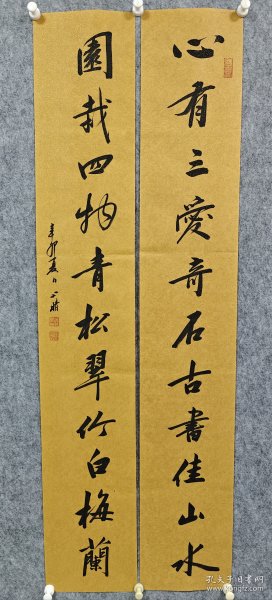 心有三愛奇石古書佳山水
園栽四物青松翠竹白梅蘭
辛卯夏月
孔夫子旧书网